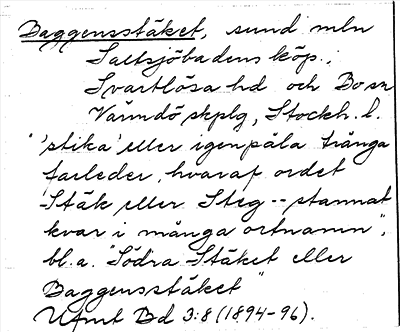 Baggensstäket, sund mln
Saltsjöbadens köp.,
Svartlösa hd och Bo sn
Värmdö skplg, Stockh. l.
"'stika' eller igenpåla trånga
farleder, hvaraf ordet
Stäk eller Steg -- stannat
kvar i många ortnamn",
bl.a. "Södra Stäket eller
Baggensstäket"
Ufmt Bd 3:8 (1894-96).